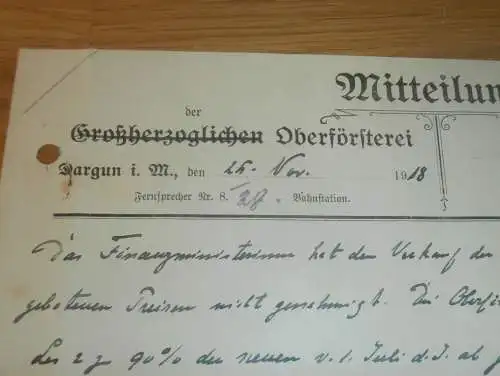 Mitteilun
der
Großherzoglichen Oberförsterei
Dargun i. M., den 25. Nov. 1918
Fernsprecher Nr. 8. 28. Bahnstation.
Das Finanzministerium hat den Verkauf der
gebotenen Preisen nicht genehmigt. Die Oberför
90% der neuen v. 1. Juli d. J. ab